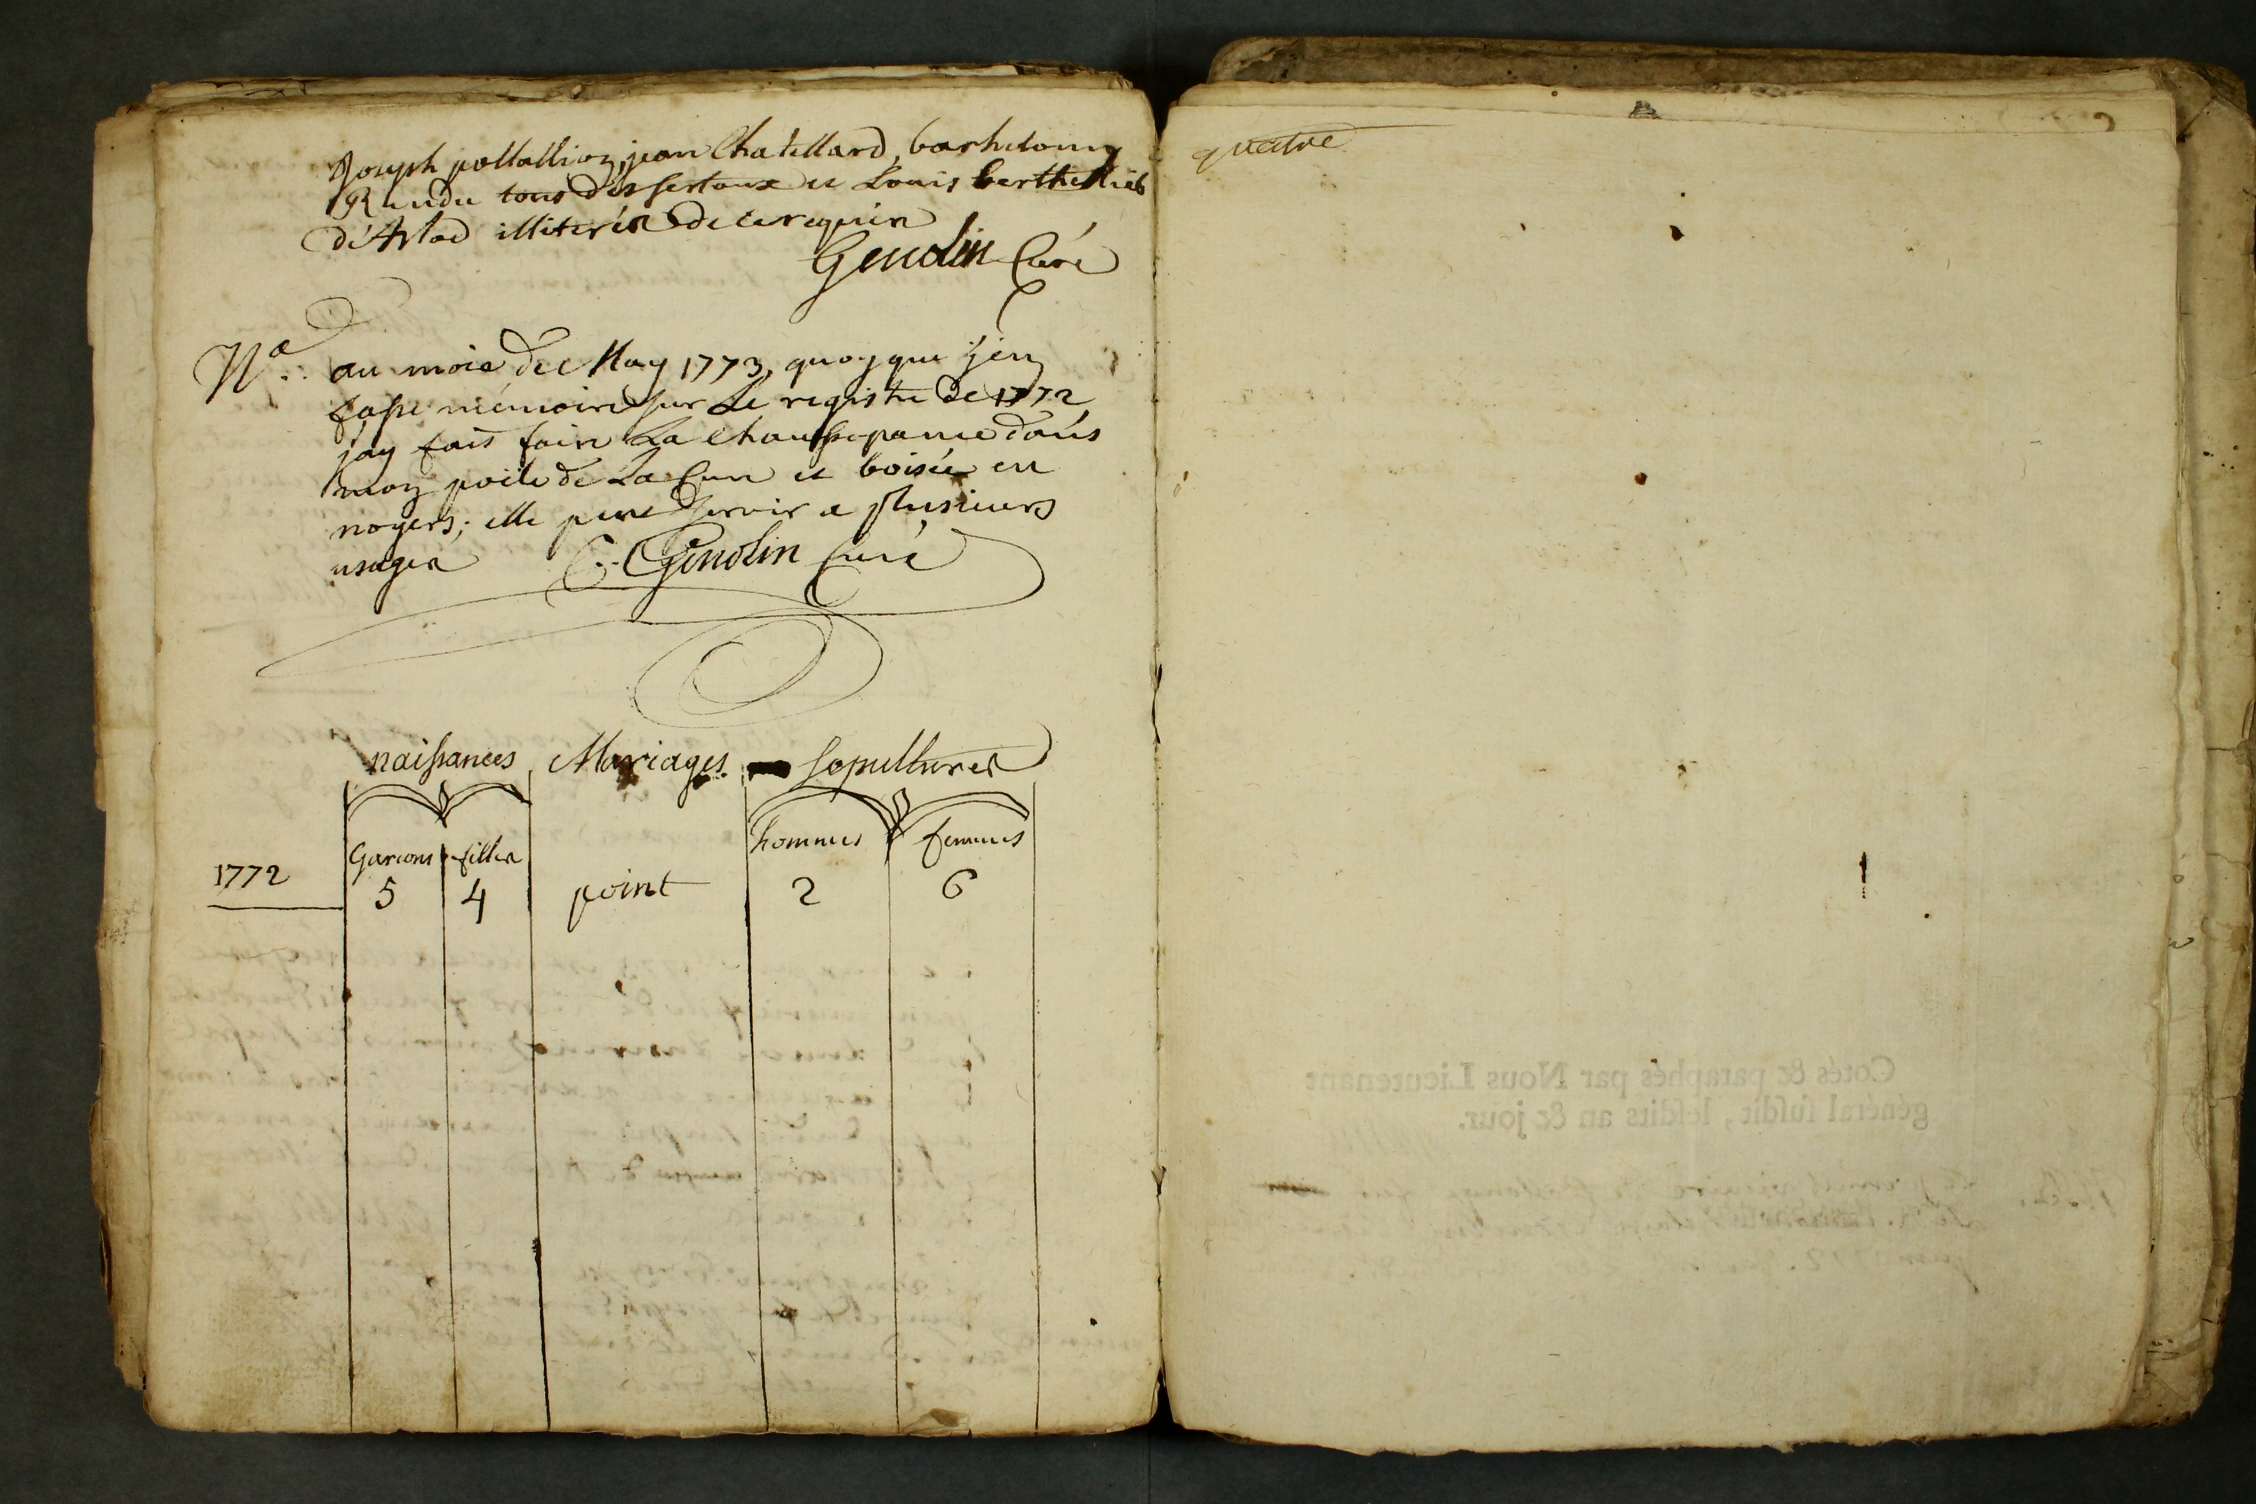 Joseph pollallion, jean Chatellard, barthelomy
Rendu tous desserteaux et Louis berthellié
d'Arlod illiterés de ce requin
Genolin Curé
Na. au mois de May 1773, quoy que j'en
fasse mémoire sur Le registre de 1772
j'ay fait faire La Chaussepance dans
mon poile de La Cure et boisée en
noyers; elle peut servir a plusieurs
usages C. Genolin Curé
naissances Mariages sepultures
Garcons filles hommes femmes
1772 5 4 point 2 6
quatre
Cotés & paraphés par Nous Lieutenant
général susdit, lesdits an & jour.